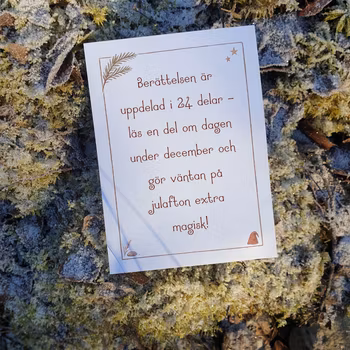 Berättelsen är
uppdelad i 24 delar –
läs en del om dagen
under december och
gör väntan på
julafton extra
magisk!